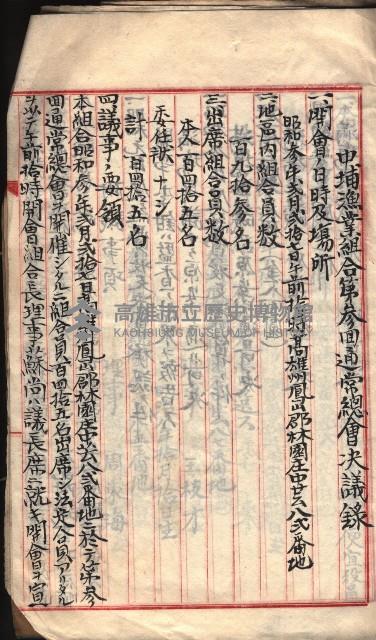 中埔漁業組合第參回通常總會決議錄
一、開會ノ日時及場所
昭和參年弍月弍拾日午前拾時高雄州鳳山郡林園庄中芸八弍番地
二、地區內組合員數
百九拾參名
三、出席組合員數
本人百四拾五名
委任狀ナシ
計百四拾五名
四、議事ノ要領
本組合昭和參年弍月弍拾日高雄州鳳山郡林園庄中芸八弍番地ニ於テ第參
回通常總會ヲ開催シタルニ組合員百四拾五名出席シ法定合員アリタル
ヲ以テ午前拾時開會組合長理事蘇尚ハ議長席ニ就キ開會ヲ宣
高雄市立歷史博物館
KAOHSIUNG MUSEUM OF HISTORY